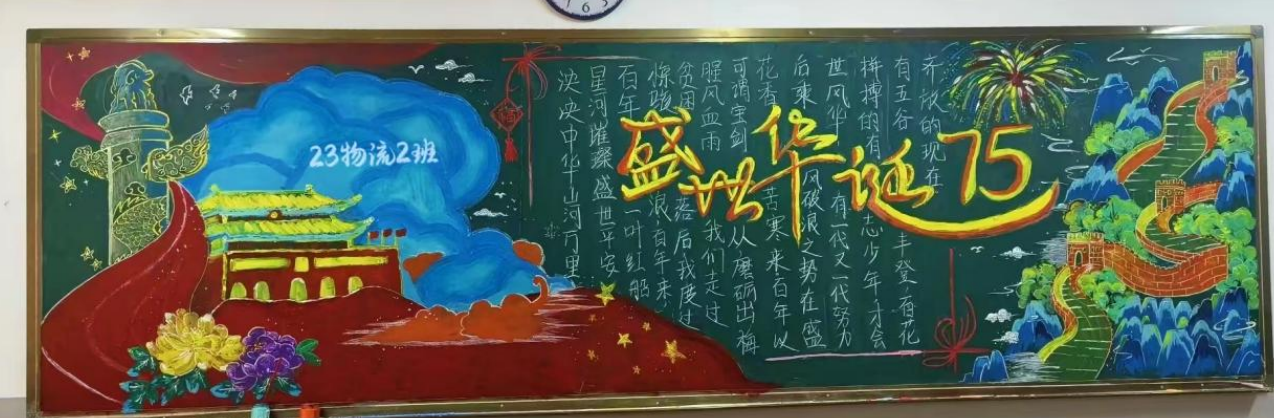 23物流2班
盛世华诞75
泱泱中华山河万里
星河璀璨盛世平安
百年 一叶红船
惊 浪百年来
贫困 落后我度过
腥风血雨 我们走过
可谓宝剑 从磨砺出梅
花香 苦寒来百年以
后乘 风破浪之势在盛
世风华 有一代又一代努力
拼搏的有 志少年才会
有五谷 丰登百花
齐放的现在